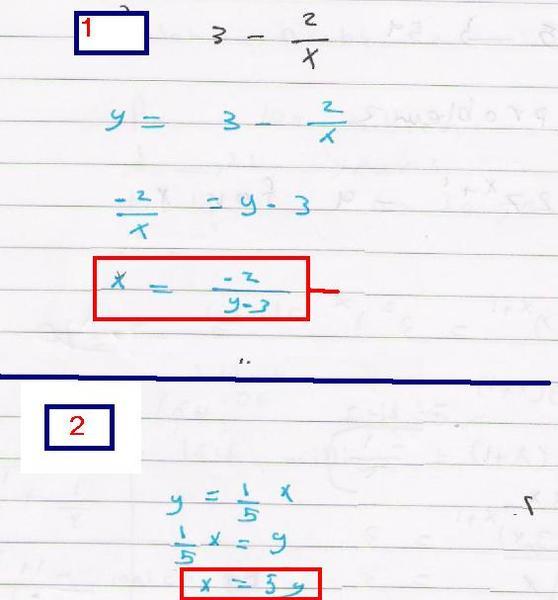 1
3 - 2/x
y = 3 - 2/x
-2/x = y - 3
x = -2/(y-3)
2
y = 1/5 x
1/5 x = y
x = 5y